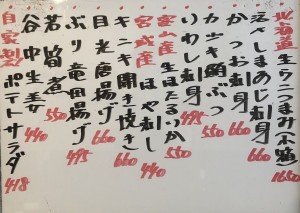 北海道生ウニつまみ(不鶴) 1650
えぞしまあじ刺身 660
かつお刺身 550
カツオ鯛ぶつ 495
いわし刺身
富山産生ほたるいか 550
宮城産ほや刺し 440
キンキ開き焼き 660
目光唐揚げ 660
若鶏竜田揚げ 495
若筍煮 550
谷中生姜 440
自家製ポテトサラダ 418